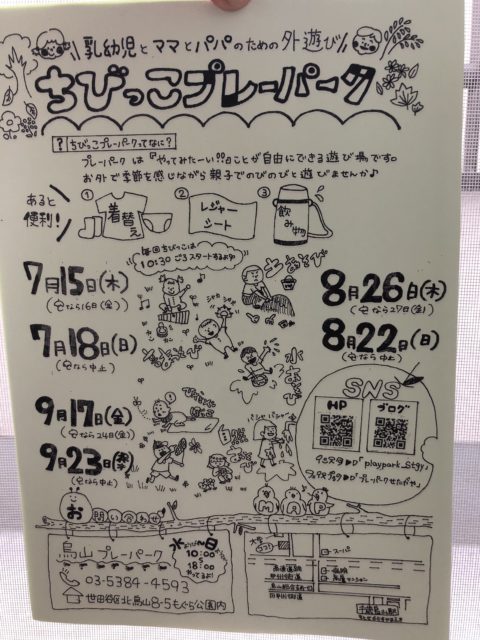 乳幼児とママとパパのための外遊び
ちびっこプレーパーク
? ちびっこプレーパークってなに?
プレーパークは『やってみたーい!!』ことが自由にできる遊び場です。
お外で季節を感じながら親子でのびのびと遊びませんか♪
あると便利!
① 着替え
② レジャーシート
③ 飲み物
毎回ちびっこは
10:30ごろスタートするよ
7月15日(木)
(なら16日(金))
7月18日(日)
(なら中止)
8月26日(木)
(なら27日(金))
8月22日(日)
(なら中止)
9月17日(金)
(なら24日(金))
9月23日(木祝)
(なら中止)
シャカシャカ
水あそび
SNS
HP
ブログ
お問い合わせ
MAP
烏山プレーパーク
水 日
10:00
18:00
やってるよ!
03-5384-4593
世田谷区北烏山8-5もぐら公園内
スーパー
甲州街道
旧甲州街道
千歳烏山駅